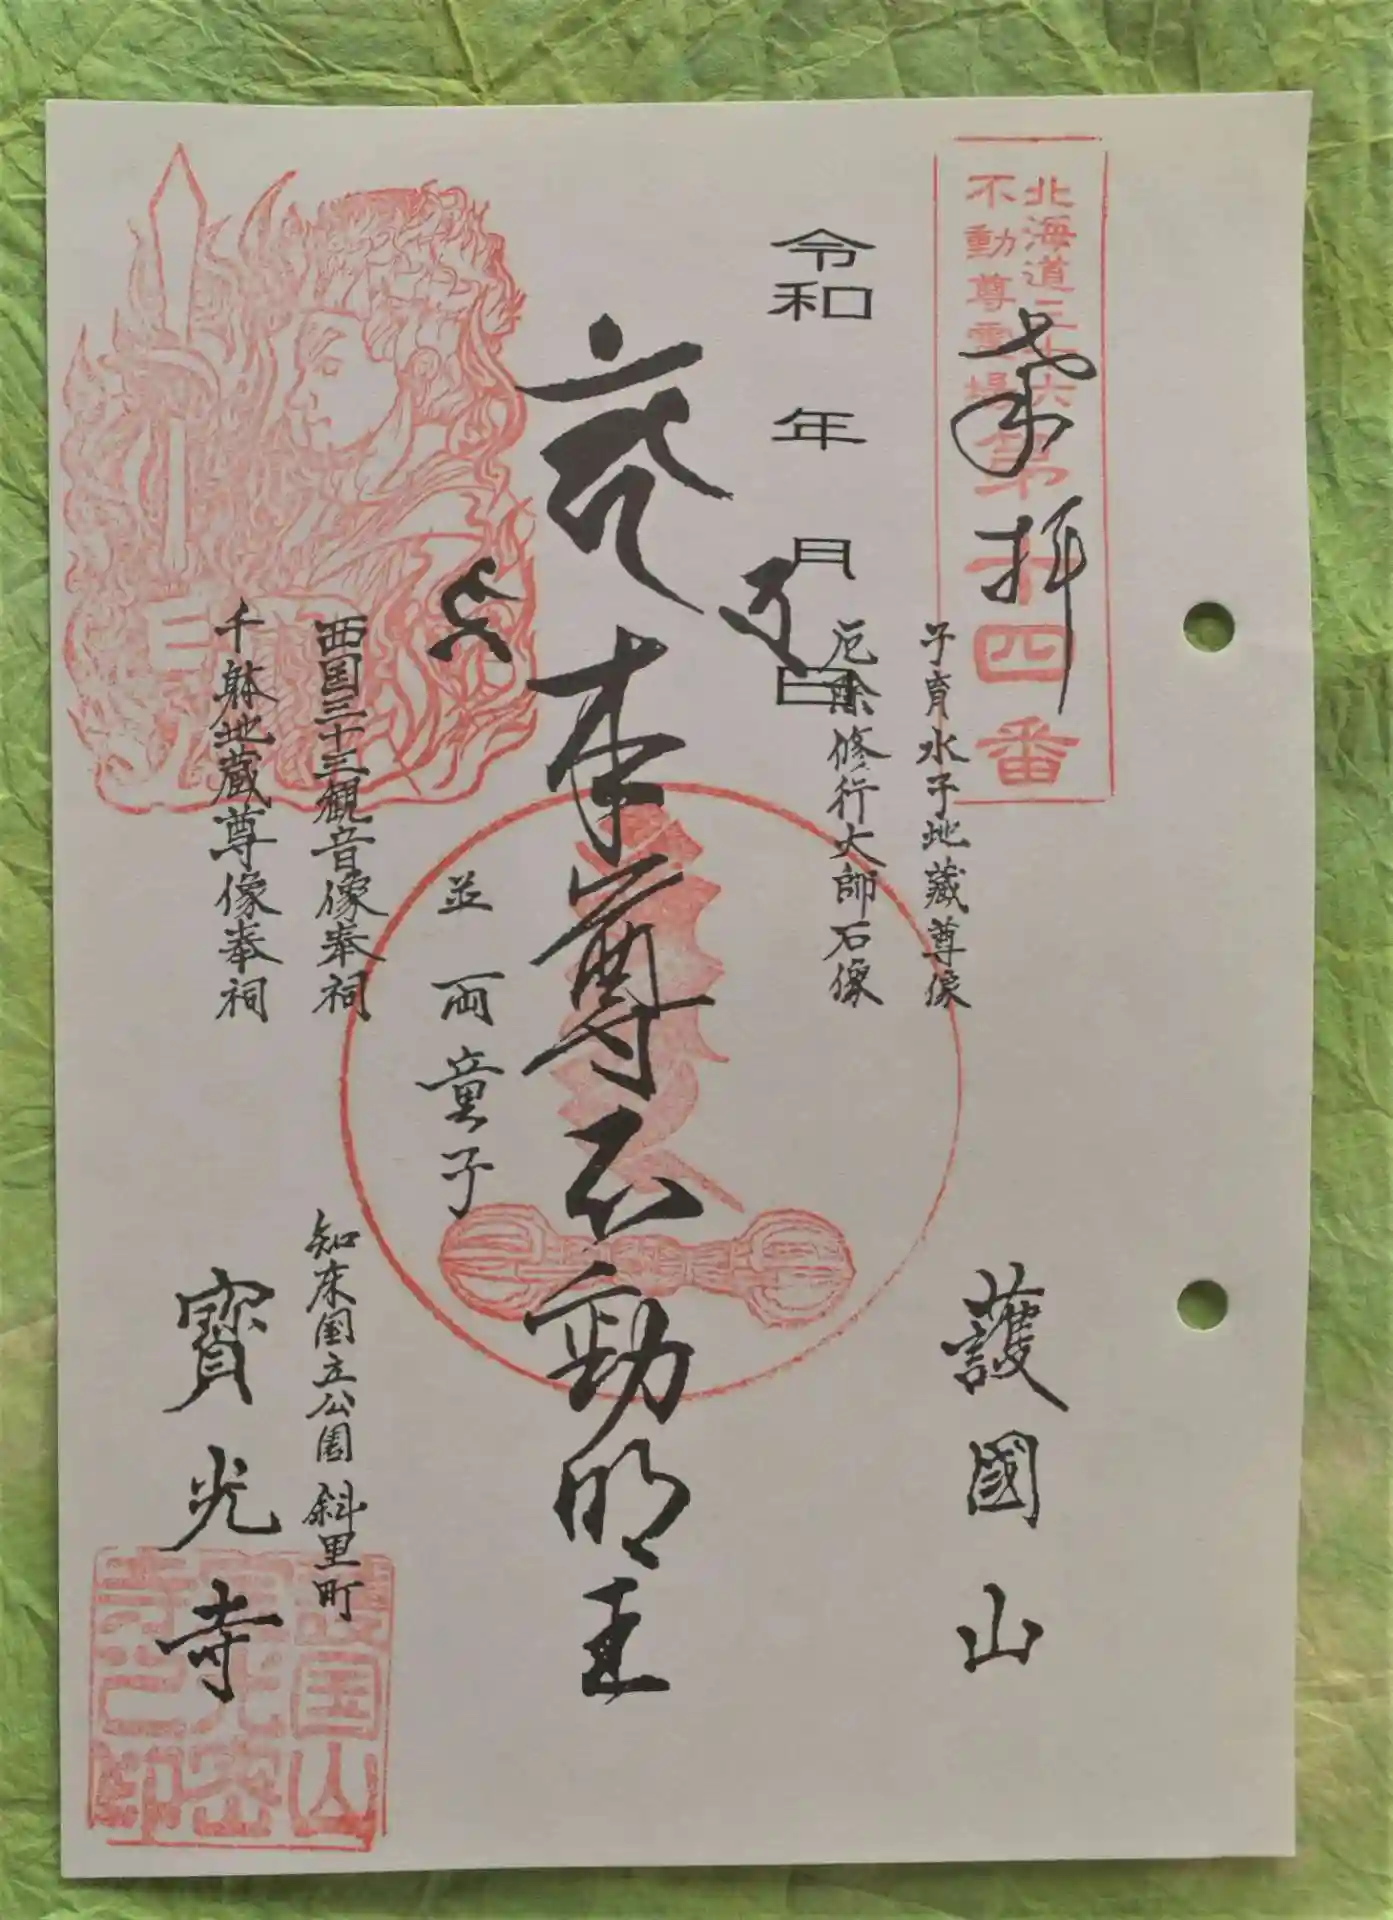 北海道三十六
不動尊霊場第十四番
奉拝
護國山
子育水子地蔵尊像
厄除修行大師石像
令和 年 月 日
本尊不動明王
並両童子
西国三十三観音像奉祠
千躰地蔵尊像奉祠
知床国立公園 斜里町
寳光寺
護国山
寺之印